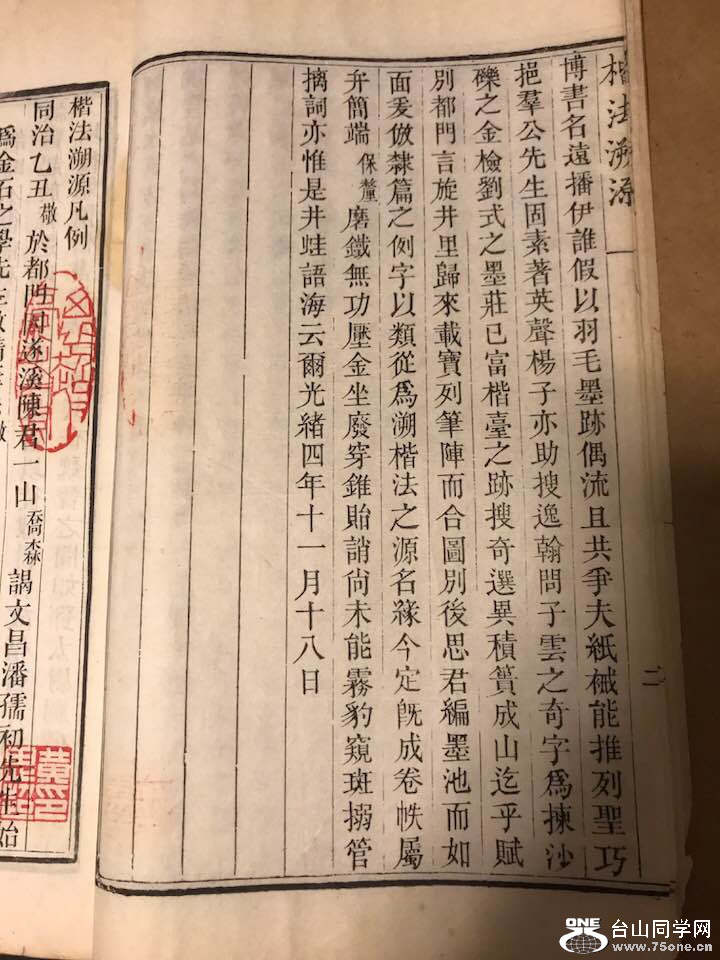 楷法溯源
二
博書名遠播伊誰假以羽毛墨跡偶流且共爭夫紙椷能推列聖巧
挹羣公先生固素著英聲楊子亦助搜逸翰問子雲之奇字爲揀沙
礫之金檢劉式之墨莊已富楷臺之跡搜奇選異積簣成山迄乎賦
別都門言旋井里歸來載寶列筆陣而合圖別後思君編墨池而如
面爰倣隸篇之例字以類從爲溯楷法之源名緣今定旣成卷帙屬
弁簡端保釐磨鐵無功壓金坐廢穿錐貽誚尙未能霧豹窺斑搦管
摛詞亦惟是井蛙語海云爾光緒四年十一月十八日
楷法溯源凡例
同治乙丑敬於都門因遂溪陳君一山喬森謁文昌潘孺初先生始
爲金石之學先生
ONE 台山同学网
www.75one.com